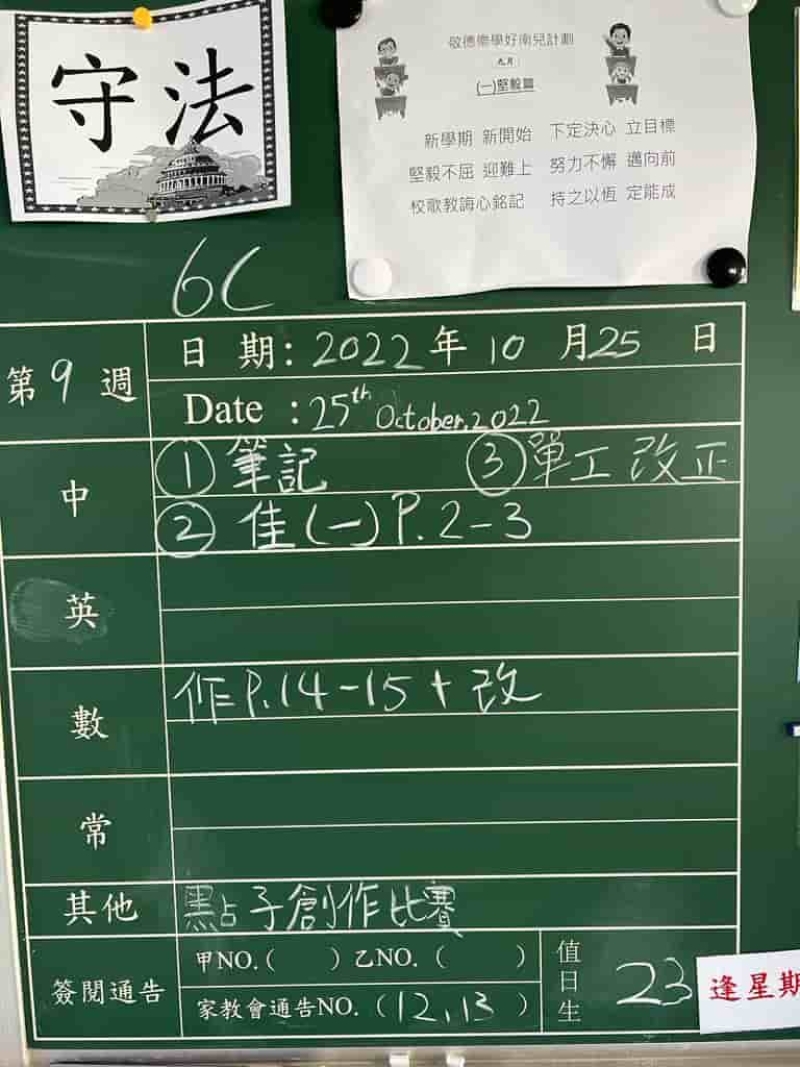 守法
敬德樂學好南兒計劃
九月
(一)堅毅篇
新學期 新開始 下定決心 立目標
堅毅不屈 迎難上 努力不懈 邁向前
校歌教誨心銘記 持之以恆 定能成
6C
第9週
日 期: 2022 年 10 月 25 日
Date : 25th October, 2022
中
① 筆記 ③ 單工 改正
② 佳(一) P. 2-3
英
數
作 P.14-15 + 改
常
其他
點子創作比賽
簽閱通告
甲NO.( ) 乙NO. ( )
家教會通告NO. (12, 13 )
值日生
23
逢星期